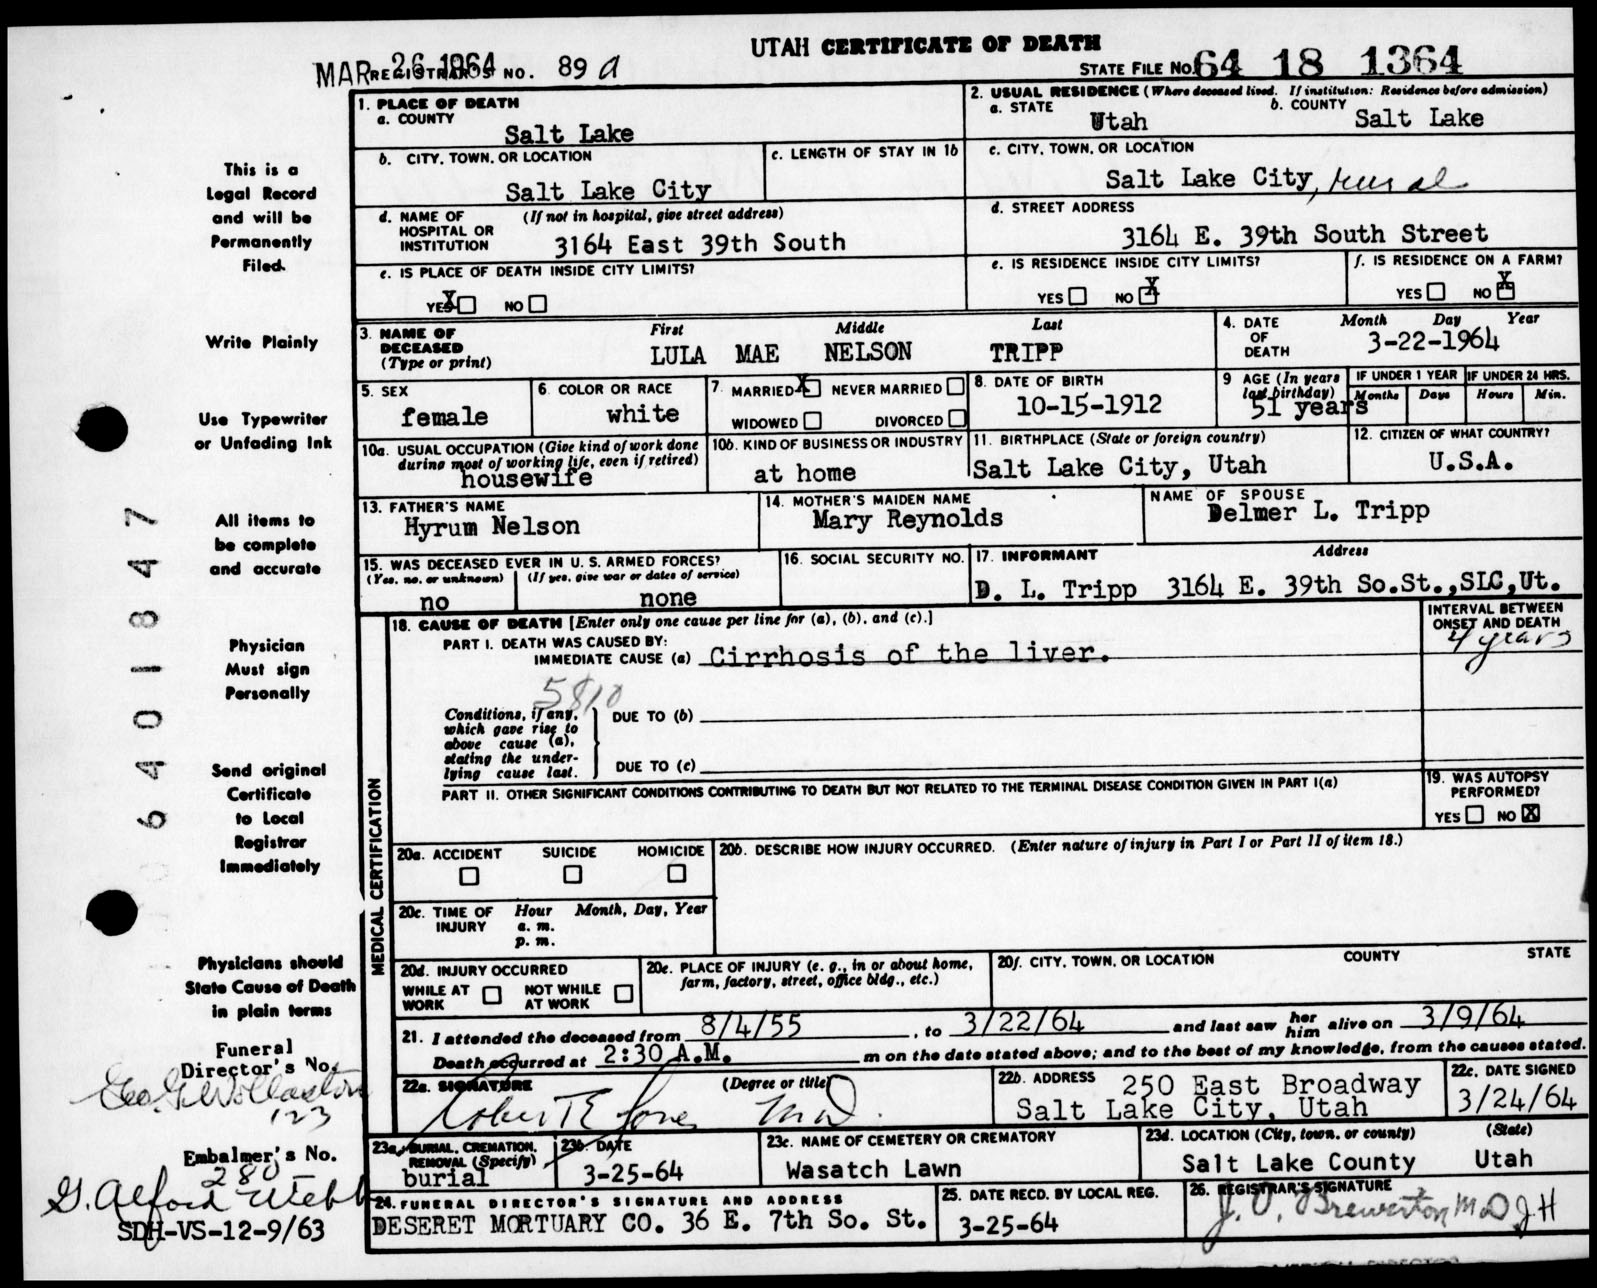 UTAH CERTIFICATE OF DEATH
MAR 26 1964 REGISTRAR'S NO. 89 a
STATE FILE NO. 64 18 1364
1. PLACE OF DEATH
a. COUNTY
Salt Lake
2. USUAL RESIDENCE (Where deceased lived. If institution: Residence before admission)
a. STATE
Utah
b. COUNTY
Salt Lake
b. CITY, TOWN, OR LOCATION
Salt Lake City
c. LENGTH OF STAY IN 1b
c. CITY, TOWN, OR LOCATION
Salt Lake City, rural
d. NAME OF HOSPITAL OR INSTITUTION (If not in hospital, give street address)
3164 East 39th South
d. STREET ADDRESS
3164 E. 39th South Street
e. IS PLACE OF DEATH INSIDE CITY LIMITS?
YES X NO
e. IS RESIDENCE INSIDE CITY LIMITS?
YES NO X
f. IS RESIDENCE ON A FARM?
YES NO X
3. NAME OF DECEASED (Type or print)
First Middle Last
LULA MAE NELSON TRIPP
4. DATE OF DEATH
Month Day Year
3-22-1964
5. SEX
female
6. COLOR OR RACE
white
7. MARRIED X NEVER MARRIED
WIDOWED DIVORCED
8. DATE OF BIRTH
10-15-1912
9 AGE (In years last birthday)
51 years
IF UNDER 1 YEAR
Months Days
IF UNDER 24 HRS.
Hours Min.
10a. USUAL OCCUPATION (Give kind of work done during most of working life, even if retired)
housewife
10b. KIND OF BUSINESS OR INDUSTRY
at home
11. BIRTHPLACE (State or foreign country)
Salt Lake City, Utah
12. CITIZEN OF WHAT COUNTRY?
U.S.A.
13. FATHER'S NAME
Hyrum Nelson
14. MOTHER'S MAIDEN NAME
Mary Reynolds
NAME OF SPOUSE
Delmer L. Tripp
15. WAS DECEASED EVER IN U. S. ARMED FORCES?
(Yes, no, or unknown) (If yes, give war or dates of service)
no none
16. SOCIAL SECURITY NO.
17. INFORMANT Address
D. L. Tripp 3164 E. 39th So.St.,SLC,Ut.
MEDICAL CERTIFICATION
18. CAUSE OF DEATH [Enter only one cause per line for (a), (b), and (c).]
INTERVAL BETWEEN ONSET AND DEATH
PART I. DEATH WAS CAUSED BY:
IMMEDIATE CAUSE (a) Cirrhosis of the liver.
4 years
5810
Conditions, if any, which gave rise to above cause (a), stating the underlying cause last.
DUE TO (b)
DUE TO (c)
PART II. OTHER SIGNIFICANT CONDITIONS CONTRIBUTING TO DEATH BUT NOT RELATED TO THE TERMINAL DISEASE CONDITION GIVEN IN PART I(a)
19. WAS AUTOPSY PERFORMED?
YES NO X
20a. ACCIDENT SUICIDE HOMICIDE
20b. DESCRIBE HOW INJURY OCCURRED. (Enter nature of injury in Part I or Part II of item 18.)
20c. TIME OF INJURY
Hour Month, Day, Year
a. m.
p. m.
20d. INJURY OCCURRED
WHILE AT WORK NOT WHILE AT WORK
20e. PLACE OF INJURY (e. g., in or about home, farm, factory, street, office bldg., etc.)
20f. CITY, TOWN, OR LOCATION COUNTY STATE
21. I attended the deceased from 8/4/55, to 3/22/64 and last saw her him alive on 3/9/64
Death occurred at 2:30 A.M. m on the date stated above; and to the best of my knowledge, from the causes stated.
22a. SIGNATURE (Degree or title)
Robert E Jones M.D.
22b. ADDRESS 250 East Broadway
Salt Lake City, Utah
22c. DATE SIGNED
3/24/64
23a. BURIAL, CREMATION, REMOVAL (Specify)
burial
23b. DATE
3-25-64
23c. NAME OF CEMETERY OR CREMATORY
Wasatch Lawn
23d. LOCATION (City, town, or county) (State)
Salt Lake County Utah
24. FUNERAL DIRECTOR'S SIGNATURE AND ADDRESS
DESERET MORTUARY CO. 36 E. 7th So. St.
25. DATE RECD. BY LOCAL REG.
3-25-64
26. REGISTRAR'S SIGNATURE
J. O. Brewerton M D J H
This is a
Legal Record
and will be
Permanently
Filed.
Write Plainly
Use Typewriter
or Unfading Ink
All items to
be complete
and accurate
Physician
Must sign
Personally
Send original
Certificate
to Local
Registrar
Immediately
Physicians should
State Cause of Death
in plain terms
Funeral
Director's No.
Geo. G. Wollaston
123
Embalmer's No.
280
G. Alford Webb
SDH-VS-12-9/63
6401847